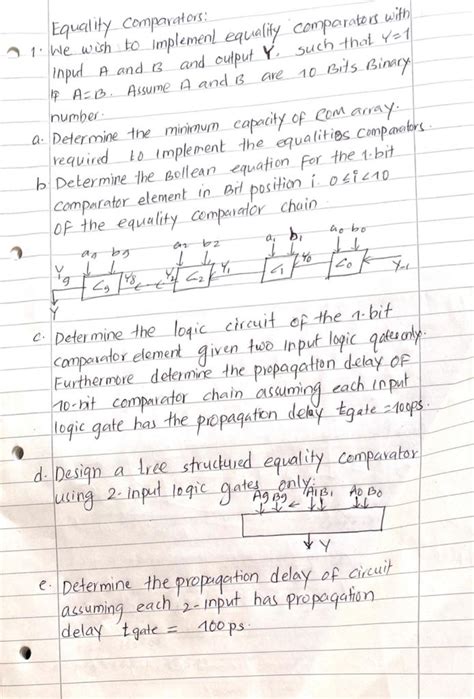 Equality Comparators:
1. We wish to implement equality comparators with
input A and B and output Y. such that Y=1
if A=B. Assume A and B are 10 Bits Binary
number.
a. Determine the minimum capacity of ROM array.
required to implement the equalities comparators.
b. Determine the Bollean equation For the 1-bit
comparator element in Bit position i. 0≤i<10
OF the equality comparator chain
a9 b9 a2 b2 a1 b1 a0 b0
Y9 C9 Y8 Y2 C2 Y1 C1 Y0 C0 Y-1
Y
c. Determine the logic circuit of the 1-bit
comparator element given two input logic gates only.
Furthermore determine the propagation delay OF
10-bit comparator chain assuming each input
logic gate has the propagation delay tgate = 100ps.
d. Design a tree structured equality comparator
using 2-input logic gates only:
A9 B9 A1 B1 A0 B0
Y
e. Determine the propagation delay of circuit
assuming each 2-input has propagation
delay tgate = 100 ps.